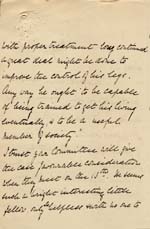 with proper treatment long continued
a great deal might be done to
improve the control of his legs.
Any way he ought "to be capable
of being trained to get his living
eventually & to be a useful
member of Society"
I trust your Committee will give
the case favourable consideration
when they meet on the 15th. He seems
such a bright interesting little
fellow only helpless with no one to